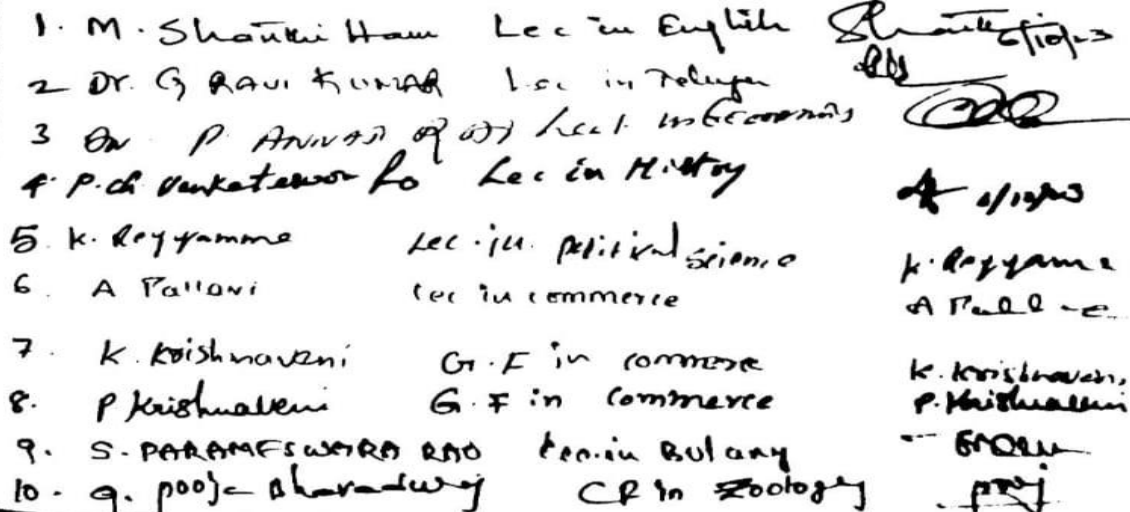 1. M. Shanthi Lec in English 6/10/23
2 Dr. G RAVI KUMAR Lec in Telugu
3 P. Lect. in Economics
4. P. Ch. Venkateswar Lec in History
5. K. Reyyamma Lec. in. political science K. Reyyamma
6. A Pallavi Lec in commerce A
7. K. Krishnaveni G.F in commerce K. Krishnaveni
8. P Krishnaveni G.F in Commerce P. Krishnaveni
9. S. PARAMESWARA RAO Lec. in Botany
10. G. Pooja Bharadwaj CR in Zoology